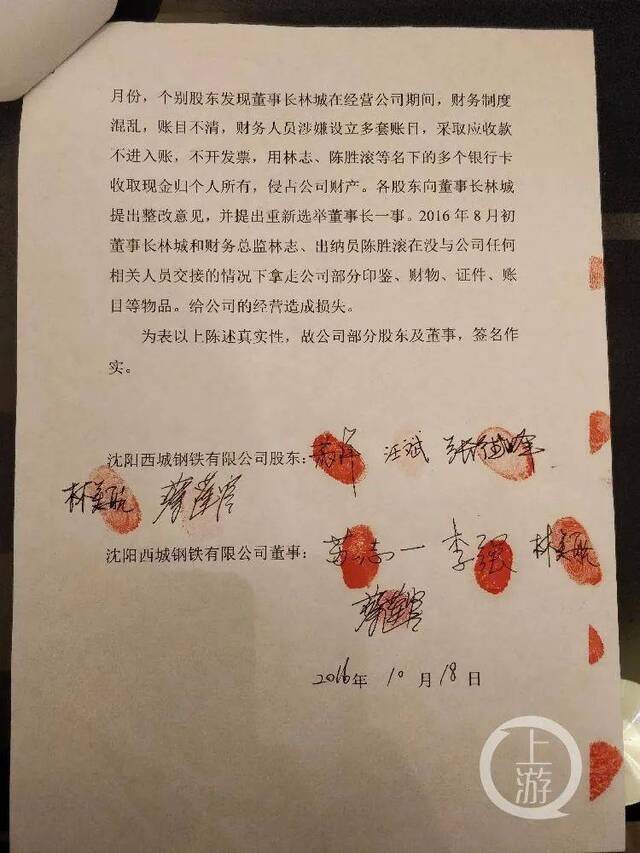 月份，个别股东发现董事长林城在经营公司期间，财务制度
混乱，账目不清，财务人员涉嫌设立多套账目，采取应收款
不进入账，不开发票，用林志、陈胜滚等名下的多个银行卡
收取现金归个人所有，侵占公司财产。各股东向董事长林城
提出整改意见，并提出重新选举董事长一事。2016年8月初
董事长林城和财务总监林志、出纳员陈胜滚在没与公司任何
相关人员交接的情况下拿走公司部分印鉴、财物、证件、账
目等物品。给公司的经营造成损失。
为表以上陈述真实性，故公司部分股东及董事，签名作
实。
沈阳西城钢铁有限公司股东：汪斌
沈阳西城钢铁有限公司董事：苏志一 李强
2016年10月18日
上游